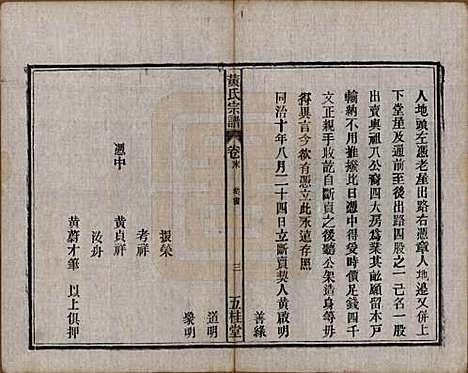 人地頭左憑老屋出路右憑章人地邊又併上
下堂屋及通前至後出路四股之一己名一股
出賣與祖八公裔四大房為業其畝願留本戶
輸納不用推撥比日憑中得愛時價足錢四千
文正親手收訖自斷賣之後聽公架造無得等弗
得異言今欲有憑立此永遠存照
同治十年八月二十四日立斷賣契人黃啟明
善繡
道明
黃氏宗譜
卷末
契書
三
五桂堂
棠明
憑中
振榮
考祥
黃貞祥
汝舟
黃蔚才筆
以上俱押